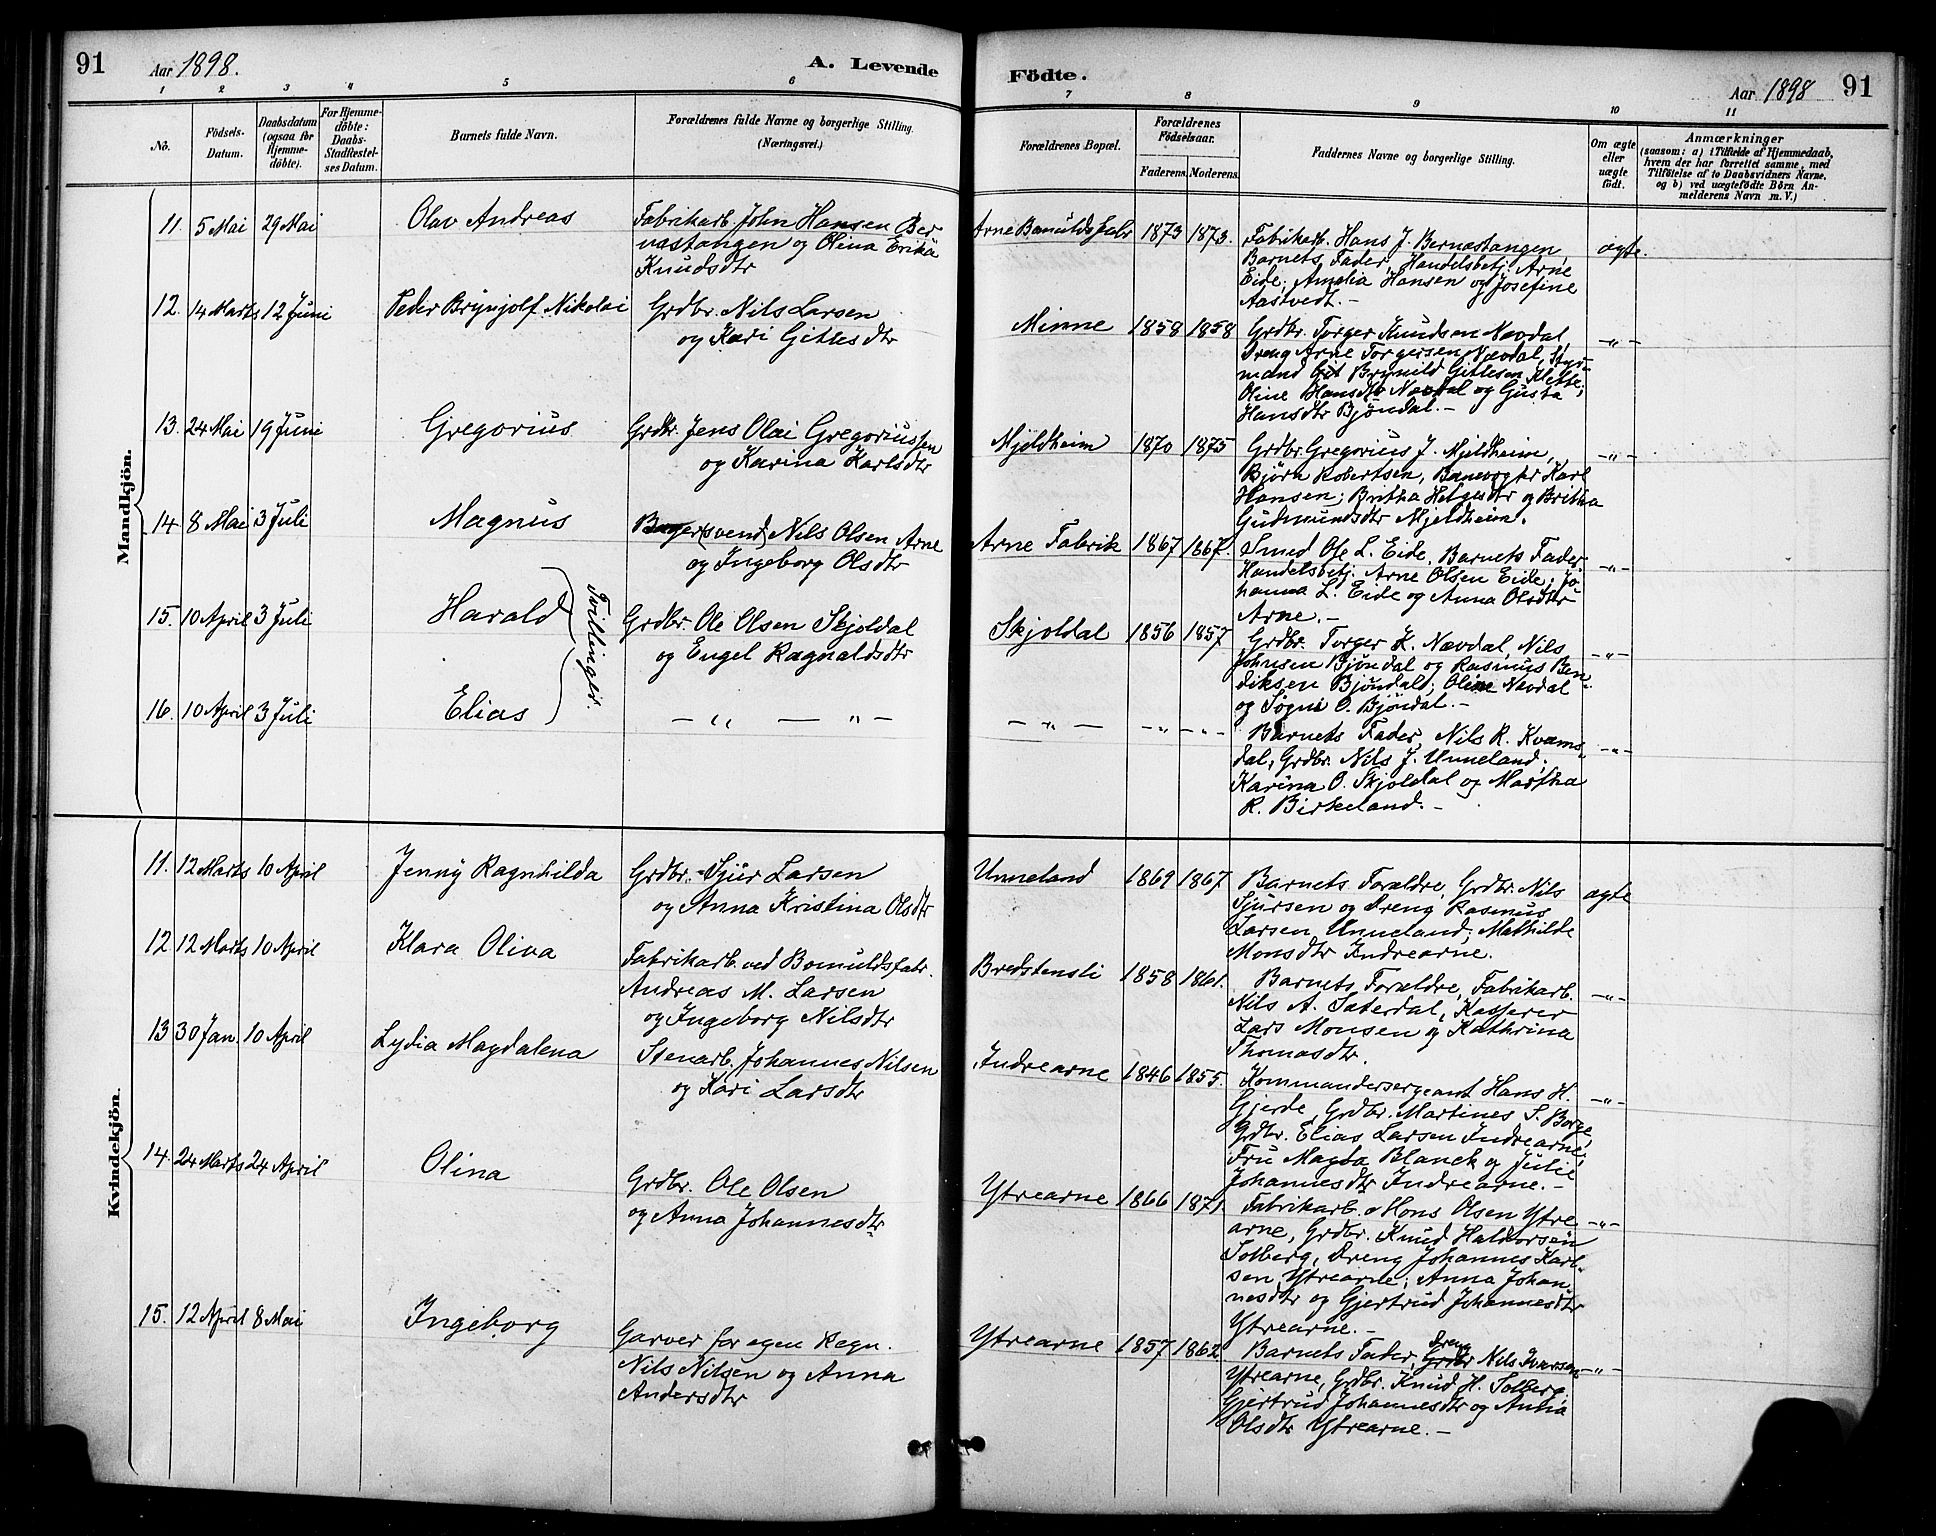 91
Aar 1898.
A. Levende
Födte.
Aar 1898
91
1
2
3
4
5
6
7
8
9
10
11
No.
Födsels-
Datum.
Daabsdatum
(ogsaa for
Hjemme-
döbte).
For Hjemme-
döbte:
Daabs-
Stadfæstel-
ses Datum.
Barnets fulde Navn.
Forældrenes fulde Navne og borgerlige Stilling.
(Næringsvei.)
Forældrenes Bopæl.
Forældrenes
Födselsaar.
Faderens.
Moderens.
Faddernes Navne og borgerlige Stilling.
Om ægte
eller
uægte
födt.
Anmærkninger
(saasom: a) i Tilfælde af Hjemmedaab,
hvem der har forrettet samme, med
Tilföielse af to Daabsvidners Navne,
og b) ved uægtefödte Börn An-
melderens Navn m. V.)
Mandkjön.
11. 5 Mai 29 Mai
Olav Andreas
Fabrikarb. John Hansen Ber
nastangen og Olina Erika
Knudsdtr
Arne Bomuldsfabr 1873 1873.
Fabrikarb. Hans J. Bernastangen,
Barnets Fader, Handelsbetj. Arne
Eide; Amalia Hansen og Josefine
Aastvedt. -
ægte.
12. 14 Marts 12 Juni
Peder Brynjolf Nikolai
Grdbr. Nils Larsen
og Kari Gitlesdtr
Minne 1858 1858
Grdbr. Torger Knudsen Nævdal,
Dreng Arne Torgersen Nævdal, Styr-
mand Brynild Gitlesen Klette;
Oline Hansdtr Nævdal og Gusta
Hansdtr Bjøndal. -
-"-
13. 24 Mai 19 Juni
Gregorius
Grdbr. Jens Olai Gregoriussen
og Karina Karlsdtr
Mjeldheim 1870 1875
Grdbr. Gregorius J. Mjeldheim,
Bjørn Robertsen, Banevogter Karl
Hansen; Britha Helgesdtr og Britha
Gudmundsdtr Mjeldheim.
-"-
14. 8 Mai 3 Juli
Magnus
(svend) Nils Olsen Arne
og Ingeborg Olsdtr
Arne Fabrik 1867 1867.
Smed Ole L. Eide, Barnets Fader,
Handelsbetj. Arne Olsen Eide; Jo
hanna L. Eide og Anna Olsdtr
Arne. -
-"-
15. 10 April 3 Juli
Harald
Tvillinger.
Grdbr. Ole Olsen Skjoldal
og Engel Ragnaldsdtr
Skjoldal 1856 1857
Grdbr. Torger K. Nævdal, Nils
Johnsen Bjøndal og Rasmus Ben-
diksen Bjøndal; Oline Nævdal
og Søgni O. Bjöndal. -
-"-
16. 10 April 3 Juli
Elias
- " - " -
- " - -"- -"-
Barnets Fader, Nils R. Kvams-
dal, Grdbr. Nils J. Unneland;
Karina O. Skjoldal og Martha
R. Birkeland. -
-"-
Kvindekjön.
11. 12 Marts 10 April
Jenny Ragnhilda
Grdbr. Sjur Larsen
og Anna Kristina Olsdtr
Unneland 1869 1867
Barnets Forældre, Grdbr. Nils
Sjursen og Dreng Rasmus
Larsen Unneland; Mathilde
Monsdtr Indrearne.
ægte
12. 12 Marts 10 April
Klara Oliva
Fabrikarb. ved Bomuldsfabr.
Andreas M. Larsen
og Ingeborg Nilsdtr
Bredstensli 1858 1861.
Barnets Forældre, Fabrikarb.
Nils A. Saterdal, Kasserer
Lars Monsen og Kathrina
Thomasdtr.
-"-
13 30 Jan. 10 April
Lydia Magdalena
Stenarb. Johannes Nilsen
og Kari Larsdtr
Indrearne 1846 1855.
Kommandersergeant Hans H.
Gjerde, Grdbr. Martines S. Borge,
Grdbr. Elias Larsen Indrearne;
Fru Magda Blanck og Julie
Johannesdtr Indrearne. -
-"-
14. 24 Marts 24 April
Olina
Grdbr. Ole Olsen
og Anna Johannesdtr
Ytrearne 1866 1871.
Fabrikarb. Mons Olsen Ytre
arne, Grdbr. Knud Haldorsen
Solberg, Dreng Johannes Karl-
sen Ytrearne; Anna Johan
nesdtr og Gjertrud Johannesdtr
Ytrearne. -
-"-
15. 12 April 8 Mai
Ingeborg
Garver for egen Regn.
Nils Nilsen og Anna
Andersdtr
Ytrearne 1857 1862.
Barnets Fader, Dreng Nils Ivarsen
Ytrearne, Grdbr. Knud H. Solberg;
Gjertrud Johannesdtr og Anna
Olsdtr Ytrearne. -
-"-